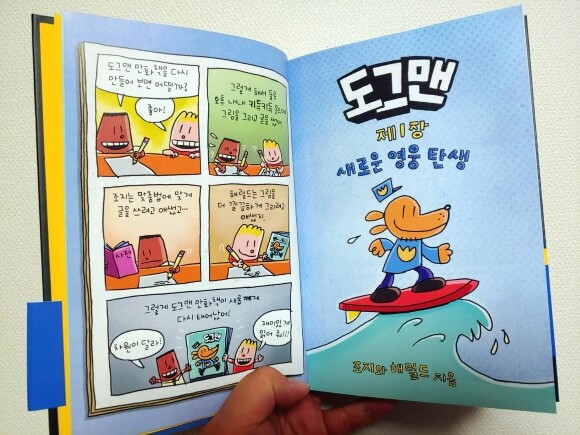 도그맨 만화책을 다시
만들어 보면 어떨까?
좋아!
그렇게 해서 둘은
오후 내내 키득키득 웃으며
그림을 그리고 글을 썼어.
조지는 맞춤법에 맞게
글을 쓰려고 애썼고...
사전
해럴드는 그림을
더 깔끔하게 그리려고
애썼지.
그렇게 도그맨 만화책이 새롭게
다시 태어났어!
차원이 달라!
도그맨
재미있게
읽어 줘!!!
도그맨
제1장
새로운 영웅 탄생
조지와 해럴드 지음